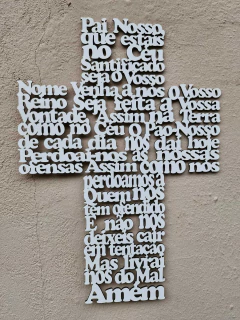 Pai Nosso,
que estais
no Céu
Santificado
seja o Vosso
Nome Venha a nós o Vosso
Reino Seja feita a Vossa
Vontade Assim na Terra
como no Céu O Pão-Nosso
de cada dia nos dai hoje
Perdoai-nos as nossas
ofensas Assim como nós
perdoamos a
Quem nos
têm ofendido
E não nos
deixeis cair
em tentação
Mas livrai
nos do Mal
Amém